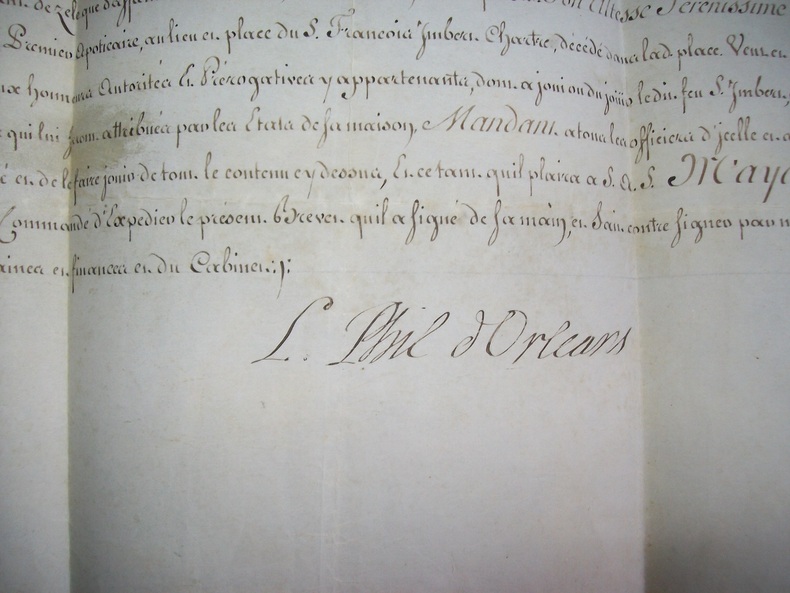 de Zele que d'affe Son Altesse Serenissime
Premier Apoticaire, au lieu et place du S. Francois Imbert Chartre, décédé dans lad. place. Veut et
aux honneurs Autorités Et Prérogatives y appartenants, dont a joui ou du jouir le dit feu S. Imbert,
qui lui sont attribués par les Etats de sa maison, Mandant a tous les officiers d'icelle
et de le faire jouir de tout le contenu cy dessus, En et tant quil plaira a S. A. S. M'aya
Commandé d'Expedier le présent Brevet quil a signé de sa main, et fait contre signer par m
et finances et du Cabinet ;/;
L. Phil d'Orleans